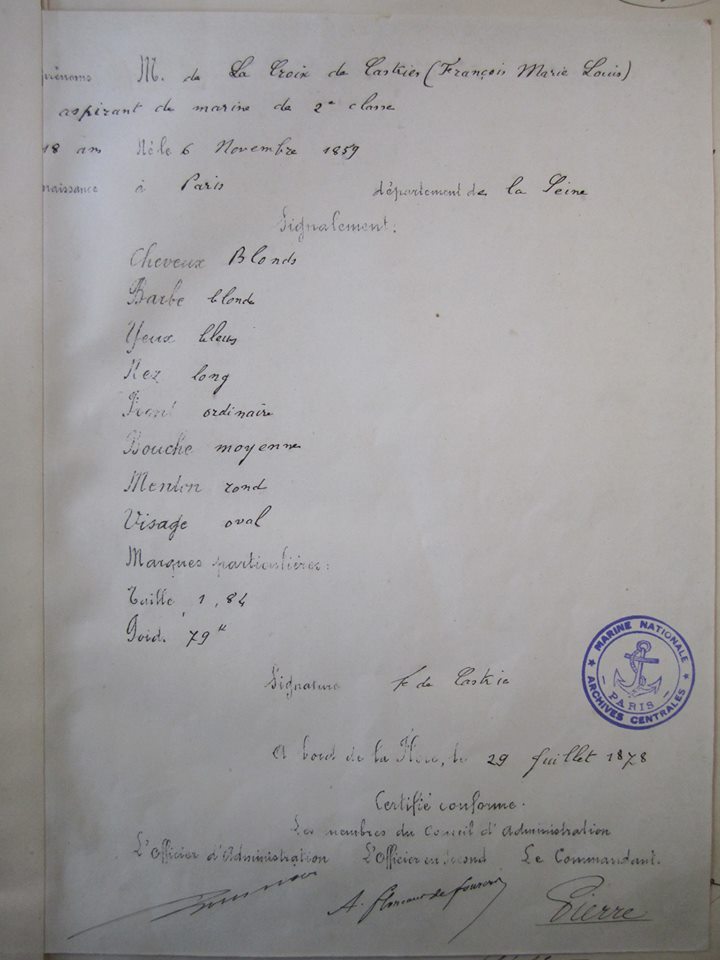 prénoms M. de La Croix de Castries (François Marie Louis)
aspirant de marine de 2e classe
18 ans Né le 6 Novembre 1859
naissance à Paris département de la Seine
Signalement:
Cheveux Blonds
Barbe blonde
Yeux bleus
Nez long
Front ordinaire
Bouche moyenne
Menton rond
Visage oval
Marques particulières:
Taille 1,84
Poid. 79k
Signature F de Castries
A bord de la Flore, le 29 Juillet 1878
Certifié conforme.
Les membres du Conseil d'Administration
L'Officier d'Administration L'Officier en Second Le Commandant.
Pierre
MARINE NATIONALE
PARIS
ARCHIVES CENTRALES